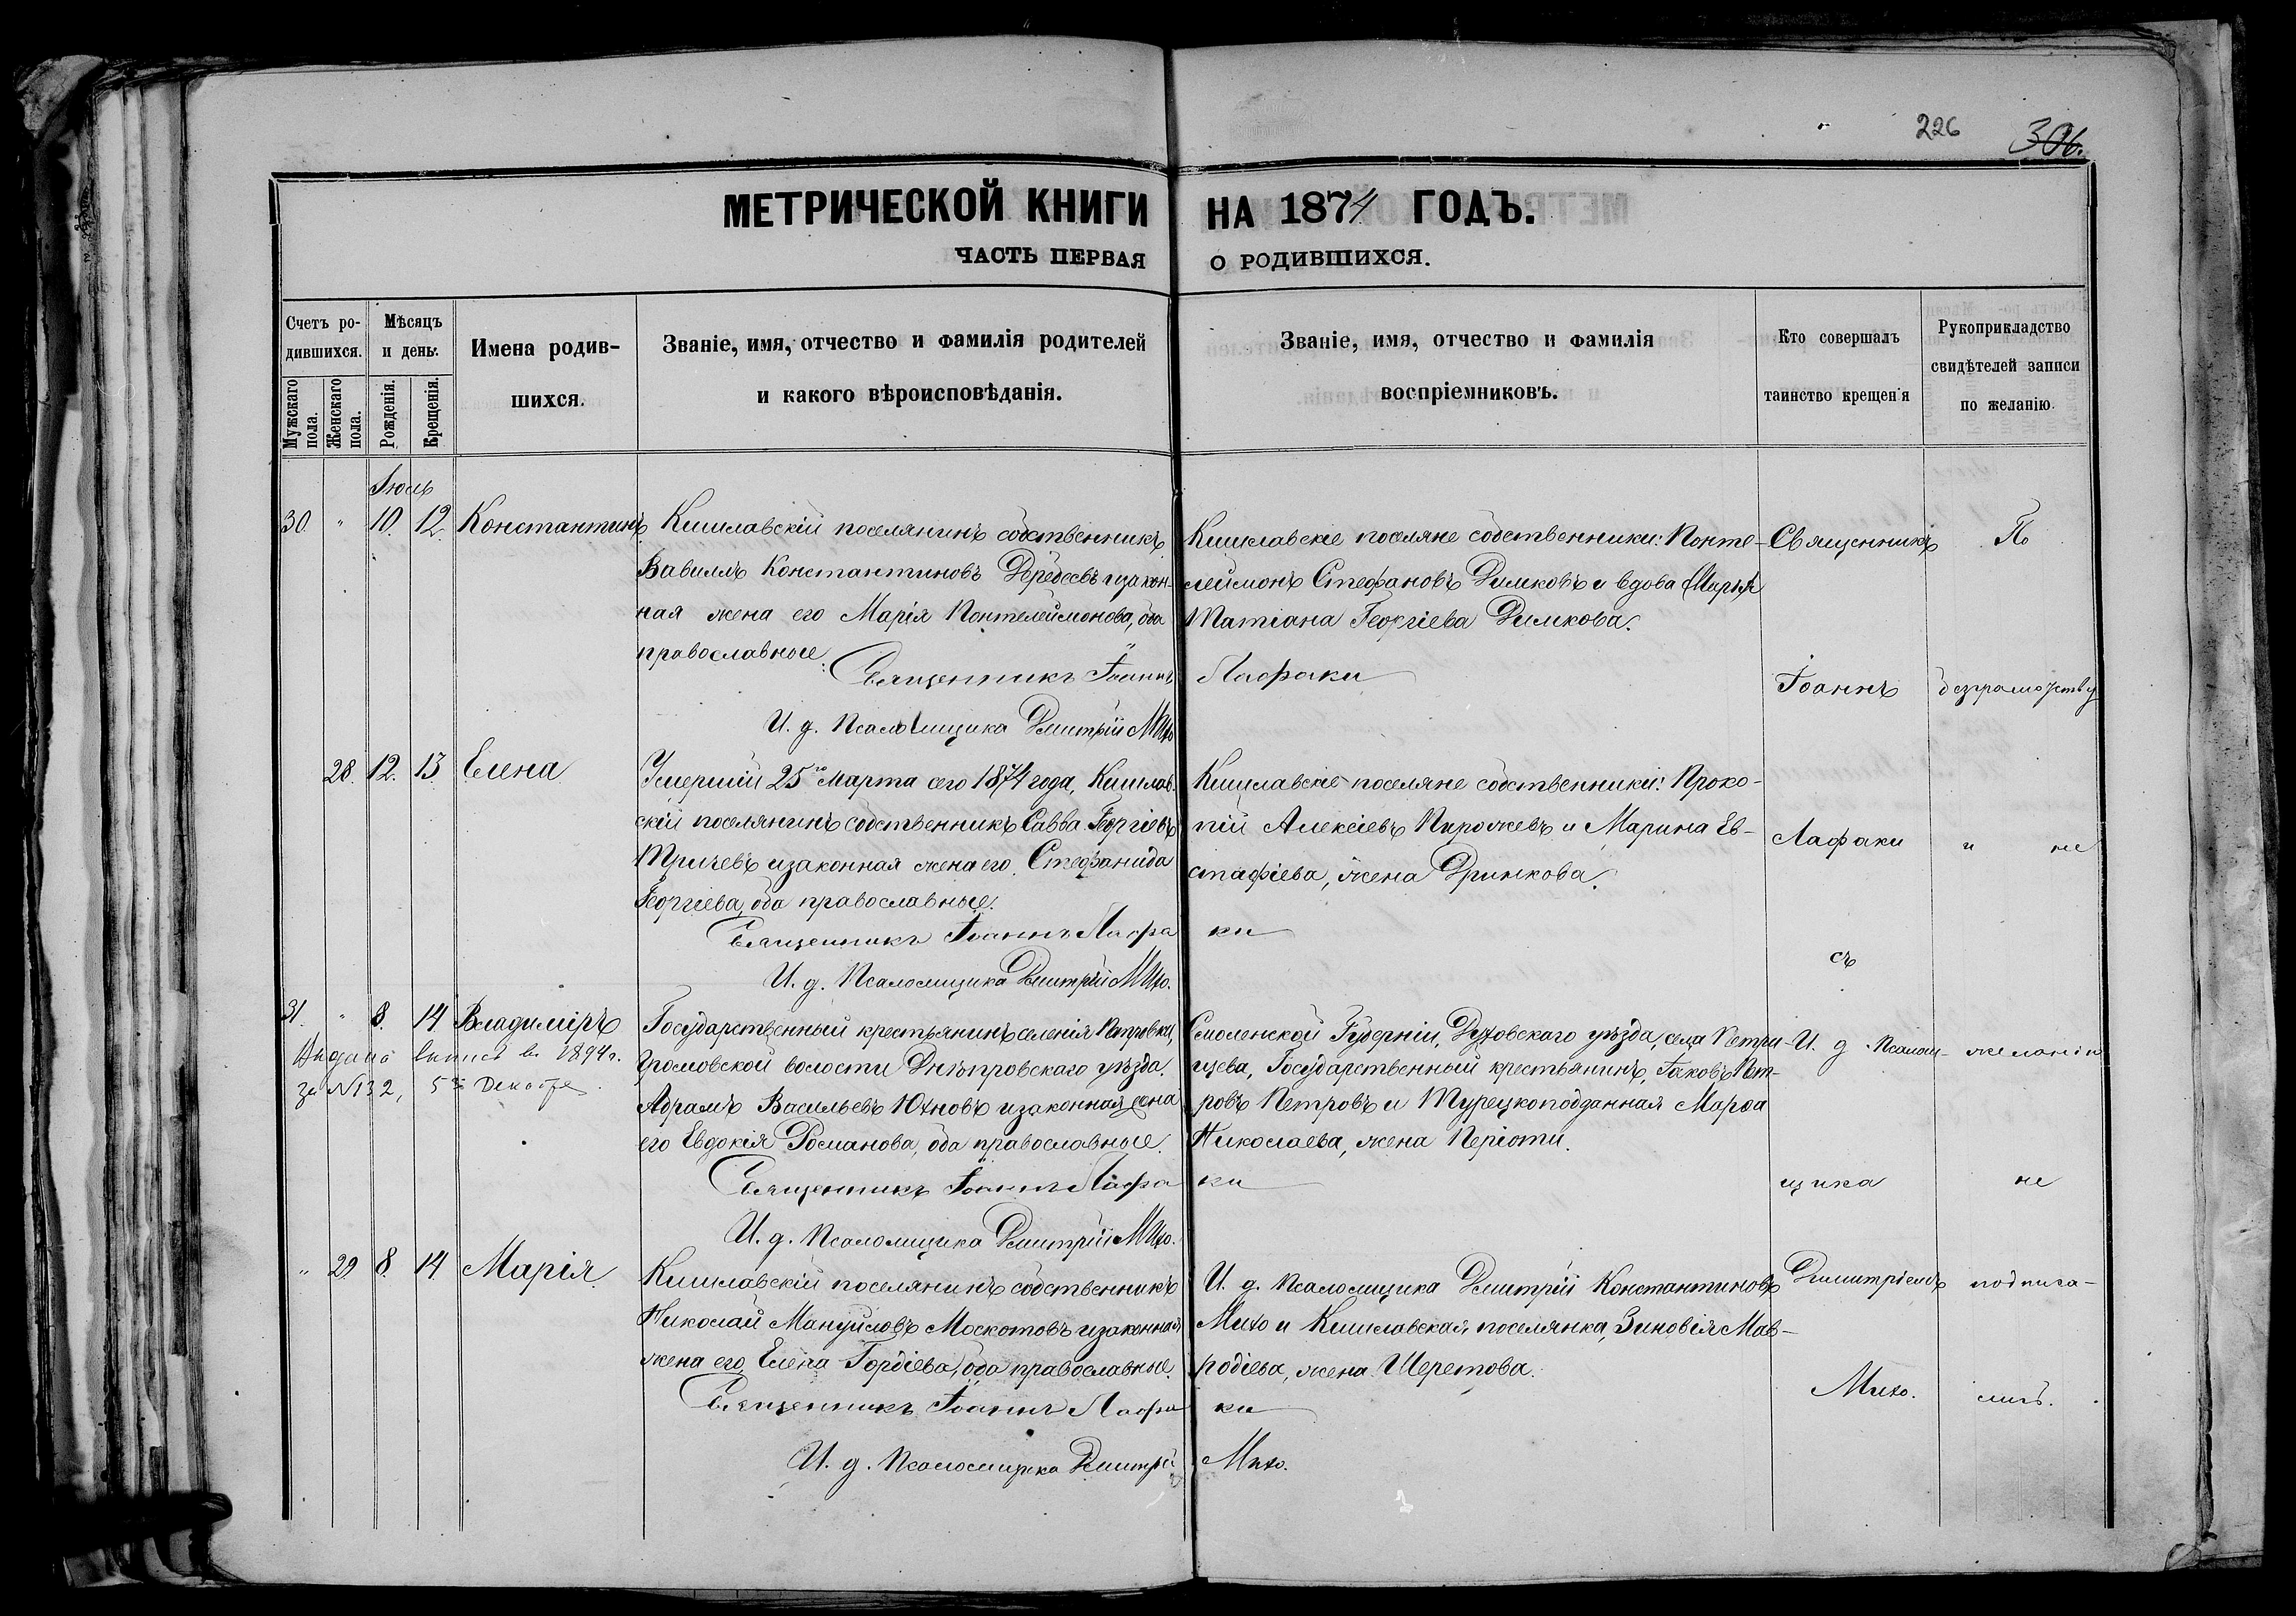 226 306.
МЕТРИЧЕСКОЙ КНИГИ НА 1874 ГОДЪ.
ЧАСТЬ ПЕРВАЯ О РОДИВШИХСЯ.
Счетъ ро-
дившихся.
Мужскаго пола.
Женскаго пола.
Мѣсяцъ
и день.
Рожденія.
Крещенія.
Имена родив-
шихся.
Званіе, имя, отчество и фамилія родителей
и какого вѣроисповѣданія.
Званіе, имя, отчество и фамилія
воспріемниковъ.
Кто совершалъ
таинство крещенія
Рукоприкладство
свидѣтелей записи
по желанію.
Іюль
30. " 10. 12. Константинъ.
Кишлавскій поселянинъ собственникъ
Вавилъ Константиновъ изакон-
ная жена его Марія Понтелеймонова, оба
православные.
Священникъ Іоаннъ Лафаки
И. д. Псаломщика Дмитрій Михо
Кишлавскіе поселяне собственники: Понте-
леймонъ Стефановъ Димковъ и вдова (Марія
Татіана Георгіева Димкова.
28. 12. 13 Елена
Умершій 25го Марта сего 1874 года, Кишлав-
скій поселянинъ собственникъ Савва Георгіевъ
Тричевъ изаконная жена его Стефанида
Георгіева, оба православные.
Священникъ Іоаннъ Лафаки
И. д. Псаломщика Дмитрій Михо.
Кишлавскіе поселяне собственники: Проко-
пій Алексіевъ Пирожевъ и Марина Ев-
стафіева, жена Дринкова.
31. " 8. 14 Владиміръ
Выдана выпись въ 1894 г.
за №132, 5го Декабря.
Государственный крестьянинъ селенія Петровки,
Громовской волости Днѣпровскаго уѣзда.
Абрамъ Васильевъ Юхновъ изаконная жена
его Евдокія Романова, оба православные.
Священникъ Іоаннъ Лафаки
И. д. Псаломщика Дмитрій Михо.
Смоленской Губерніи, Духовскаго уѣзда, села Петри-
щева, Государственный крестьянинъ, Іаковъ Пет-
ровъ Петровъ и Турецкоподданная Марѳа
Николаева, жена Періоти.
" 29 8. 14 Марія.
Кишлавскій поселянинъ собственникъ
Николай Мануйловъ Москотовъ изаконная
жена его Елена Гордіева, оба православные.
Священникъ Іоаннъ Лафаки
И. д. Псаломщика Дмитрій Михо.
И. д. Псаломщика Дмитрій Константиновъ
Михо и Кишлавская поселянка, Зиновія Мав-
родіева, жена Шеретова.
Священникъ
Іоаннъ
Лафаки
съ
И. д. Псалом-
щика
Димитріемъ
Михо.
По
безграмотству
и не
желанію
не
подписа-
лись.